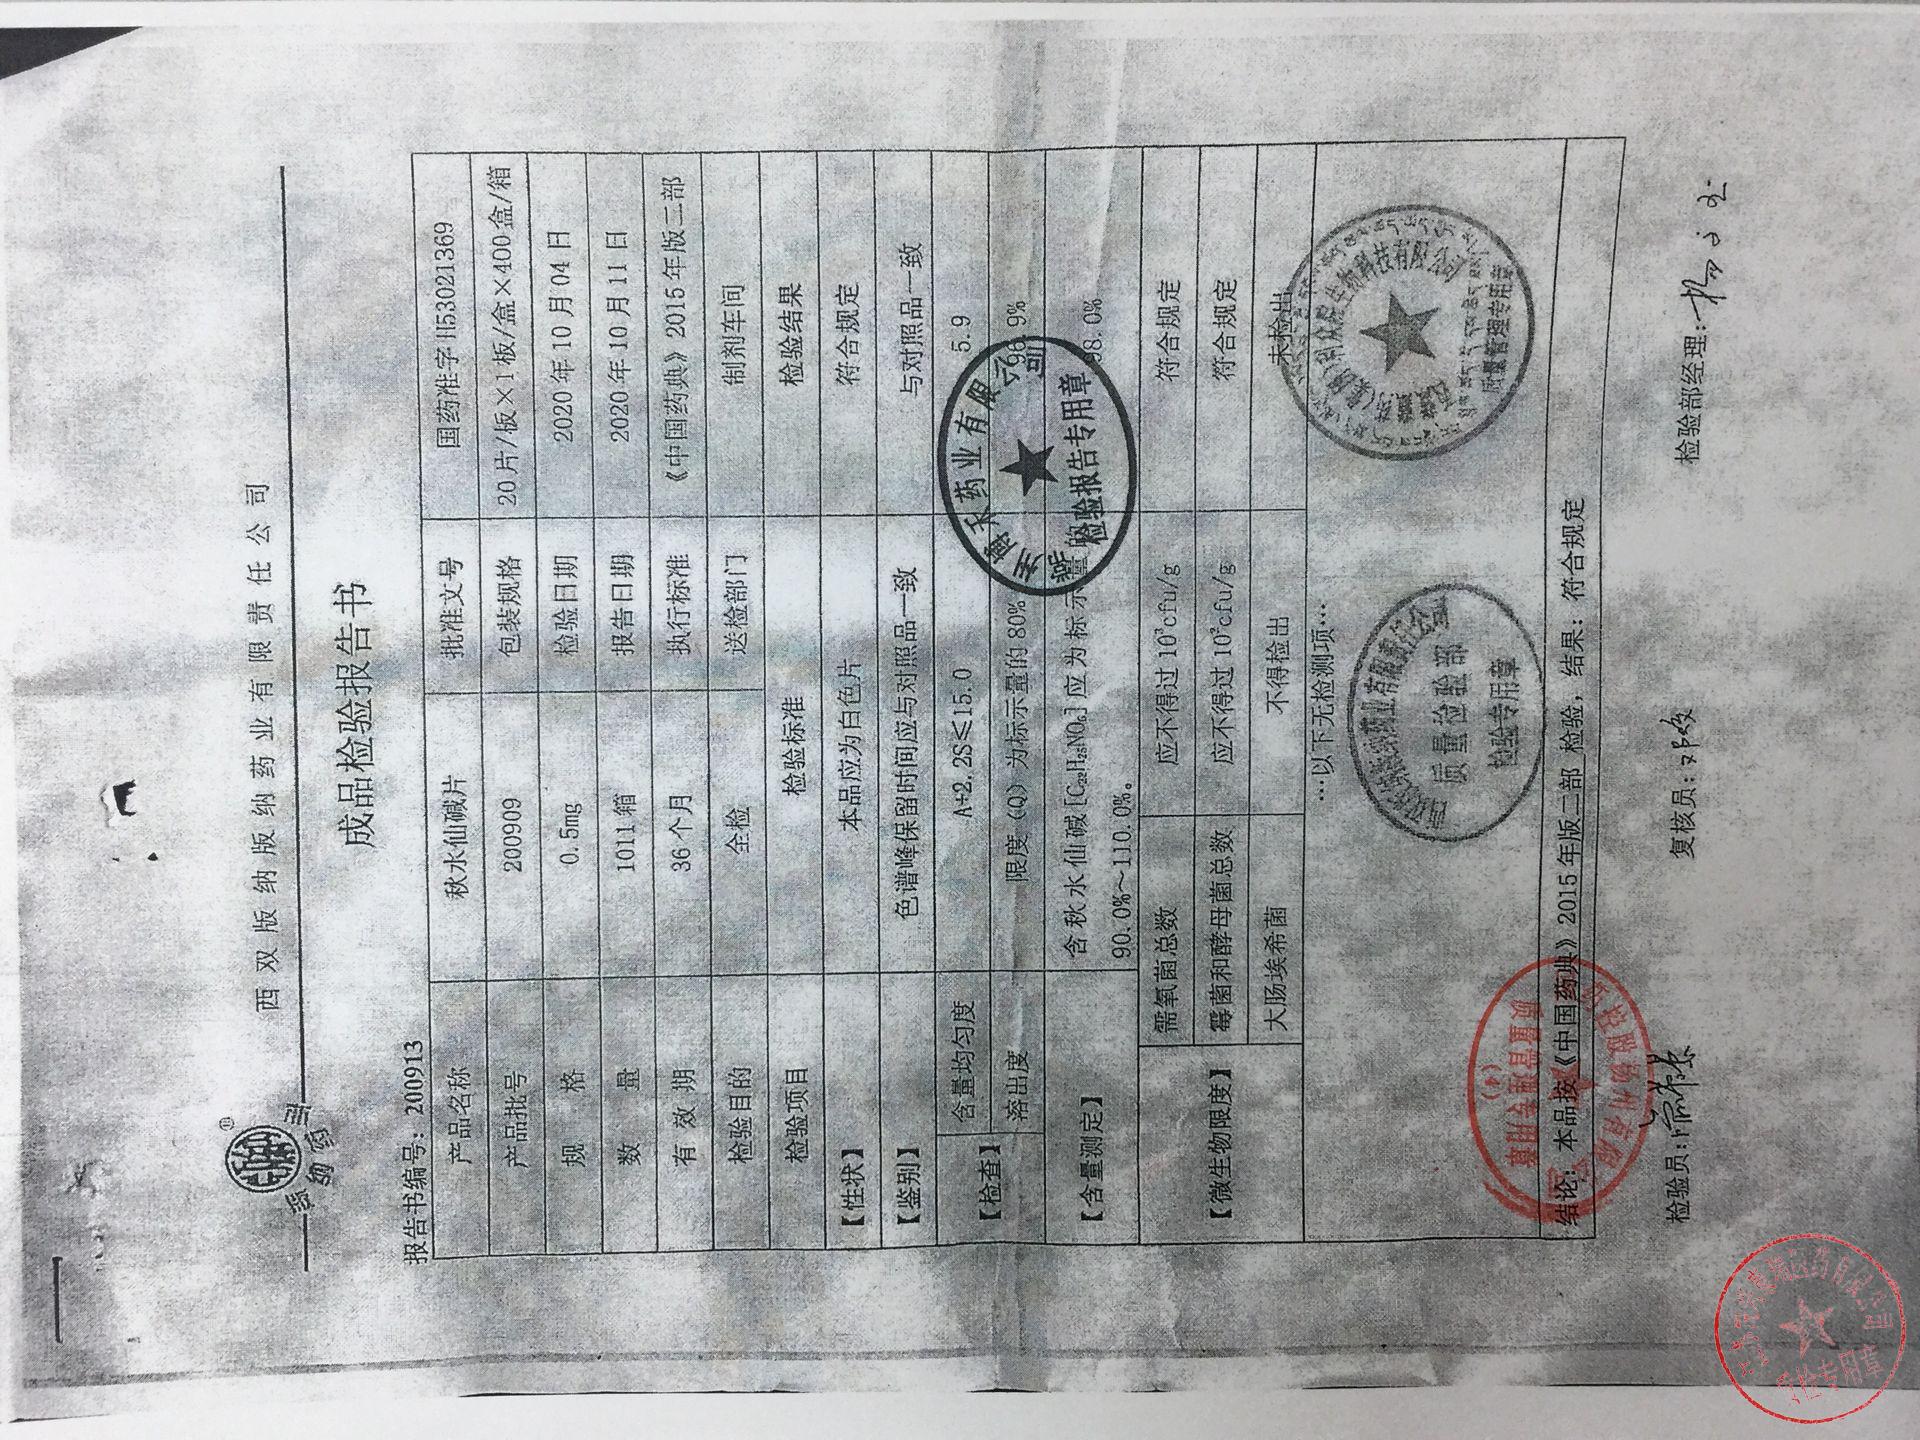 版纳药业
®
西双版纳版纳药业有限责任公司
成品检验报告书
报告书编号：200913
产品名称 秋水仙碱片 批准文号 国药准字H53021369
产品批号 200909 包装规格 20片/板×1板/盒×400盒/箱
规 格 0.5mg 检验日期 2020年10月04日
数 量 1011箱 报告日期 2020年10月11日
有 效 期 36个月 执行标准 《中国药典》2015年版二部
检验目的 全检 送检部门 制剂车间
检验项目 检验标准 检验结果
【性状】 本品应为白色片 符合规定
【鉴别】 色谱峰保留时间应与对照品一致 与对照品一致
【检查】 含量均匀度 A+2.2S≤15.0 5.9
溶出度 限度（Q）为标示量的80% 96.9%
【含量测定】 含秋水仙碱[C₂₂H₂₅NO₆]应为标示量的 98.0%
90.0%～110.0%。
【微生物限度】 需氧菌总数 应不得过10³cfu/g 符合规定
霉菌和酵母菌总数 应不得过10²cfu/g 符合规定
大肠埃希菌 不得检出 未检出
…以下无检测项…
药业有限公司
检验报告专用章
质量检验部
检验专用章
质量管理专用章
质量管理专用章
(4)
结论：本品按《中国药典》2015年版二部 检验，结果：符合规定
检验员： 复核员： 检验部经理：
医药有限公司
质检专用章